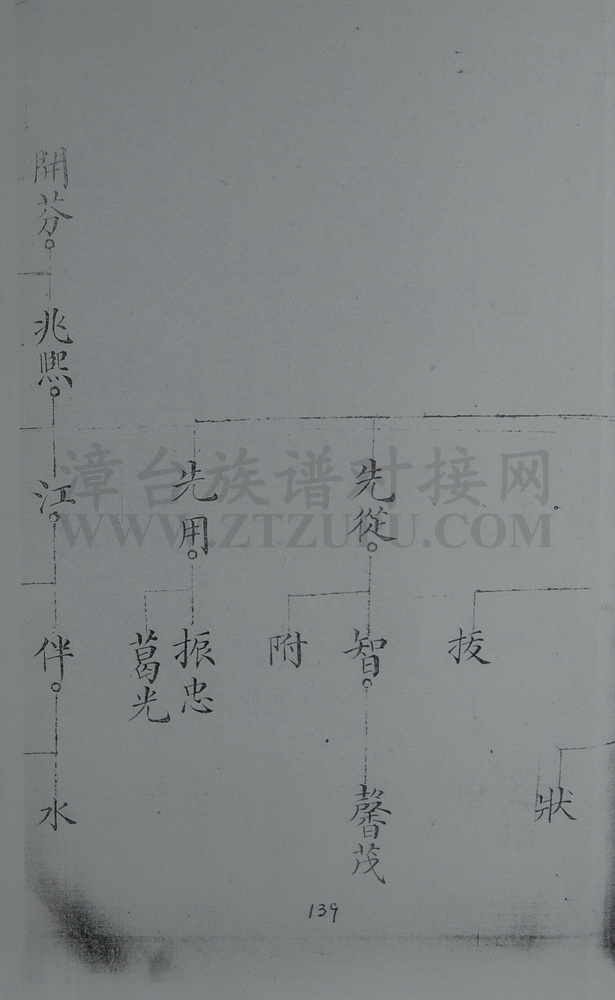 開芬
兆熙
江
伴
水
先用
振忠
葛光
先從
智
附
馨茂
拔
狀
漳台族谱对接网
WWW.ZTZUPU.COM
139